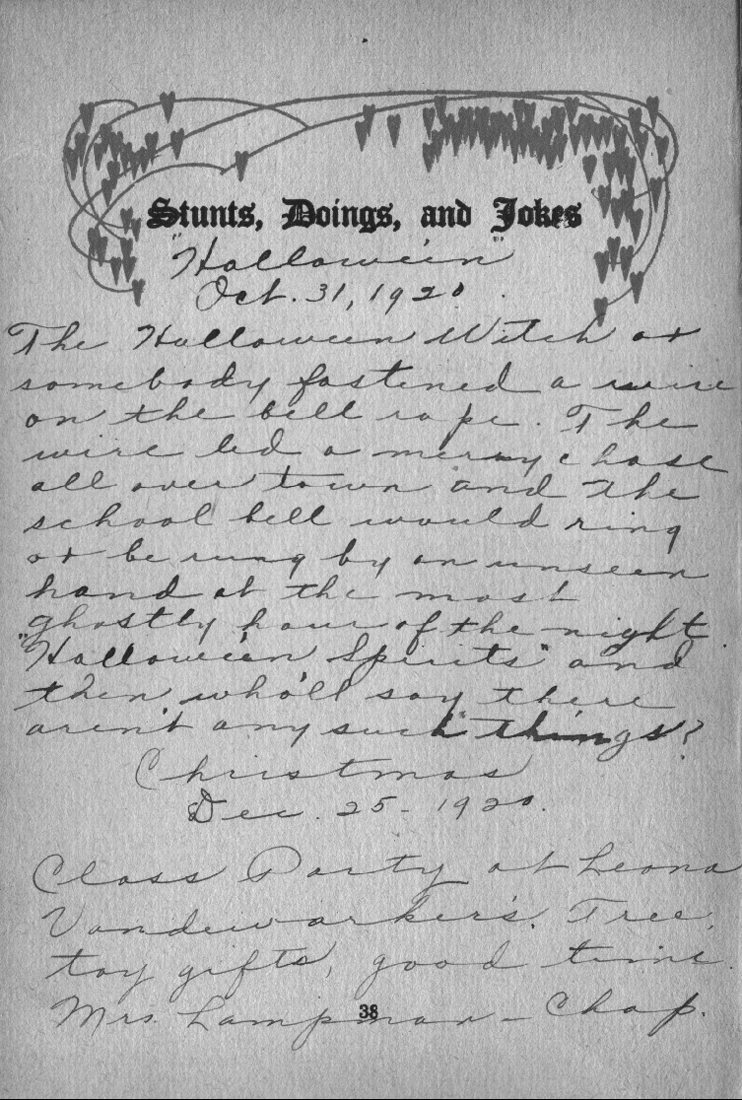 Stunts, Doings, and Jokes
"Hallowe'en"
Oct. 31, 1920.
The Hallowe'en Witch or
somebody fastened a wire
on the bell rope. The
wire led a merry chase
all over town and the
school bell would ring
or be rung by an unseen
hand at the most
ghostly hour of the night.
"Hallowe'en Spirits" and
then who'll say there
aren't any such "things"?
Christmas
Dec. 25 - 1920.
Class Party at Leona
Vandewarker's. Tree,
toy gifts, good time.
Mrs. Lampman - Chap.
38